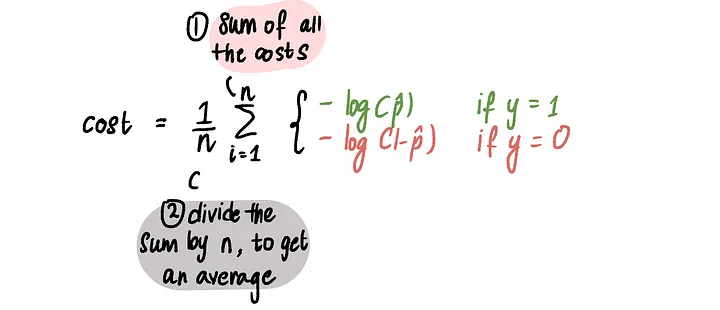 ① Sum of all
the costs
cost = 1/n n∑i=1 { - log(p̂) if y = 1
- log(1-p̂) if y = 0
② divide the
Sum by n, to get
an average